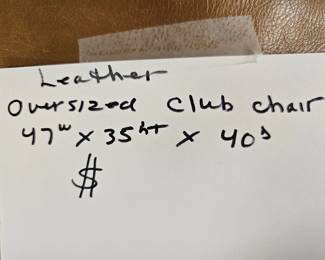 Leather
oversized club chair
47w x 35ht x 40d
$